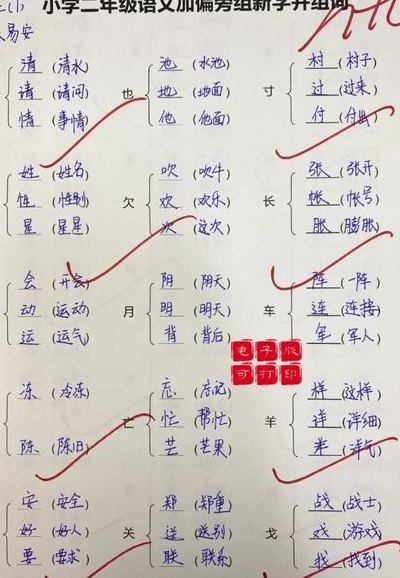 小学二年级语文加偏旁组新字并组词
易安
清 (清水) 池 (水池) 村 (村子)
请 (请问) 也 地 (地面) 寸 过 (过来)
情 (事情) 他 (他面) 付 (付出)
姓 (姓名) 吹 (吹牛) 张 (张开)
性 (性别) 欠 欢 (欢乐) 长 帐 (帐号)
星 (星星) 次 (这次) 胀 (膨胀)
会 (开会) 阴 (阴天) 阵 (一阵)
动 (运动) 月 明 (明天) 车 连 (连接)
运 (运气) 背 (背后) 军 (军人)
电子版
可打印
冻 (冷冻) 忘 (忘记) 样 (这样)
亡 忙 (帮忙) 羊 详 (详细)
陈 (陈旧) 芒 (芒果) (洋气)
安 (安全) 郑 (郑重) 战 (战士)
好 (好人) 关 送 (送别) 戈 戏 (游戏)
要 (要求) 联 (联系) 找 (找到)